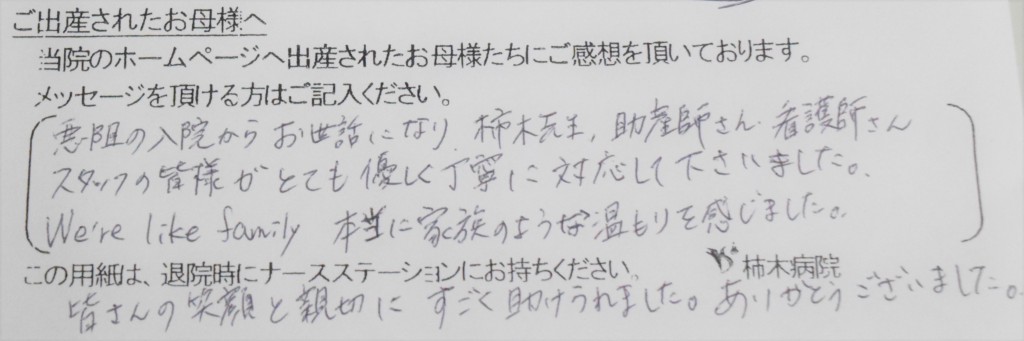 ご出産されたお母様へ
当院のホームページへ出産されたお母様たちにご感想を頂いております。
メッセージを頂ける方はご記入ください。
悪阻の入院からお世話になり、柿木先生、助産師さん、看護師さん
スタッフの皆様がとても優しく丁寧に対応して下さいました。
We're like family 本当に家族のような温もりを感じました。
この用紙は、退院時にナースステーションにお持ちください。 柿木病院
皆さんの笑顔と親切にすごく助けられました。ありがとうございました。